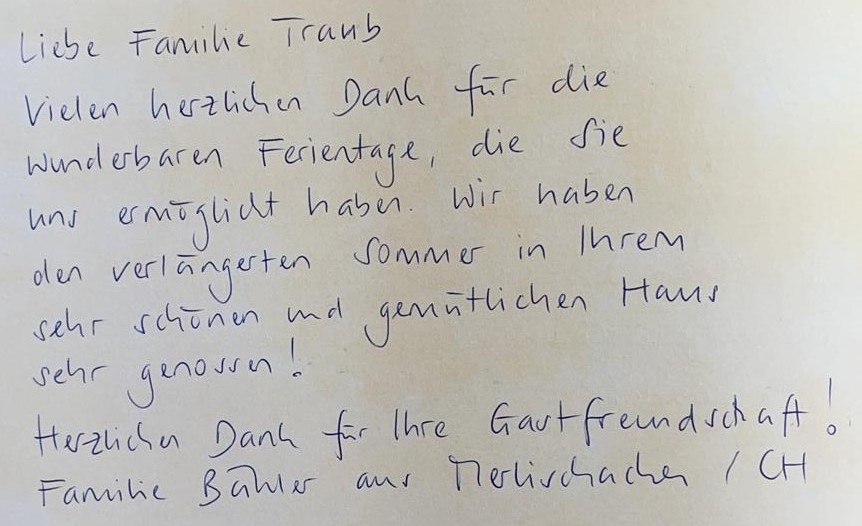 Liebe Familie Traub
Vielen herzlichen Dank für die
wunderbaren Ferientage, die Sie
uns ermöglicht haben. Wir haben
den verlängerten Sommer in Ihrem
sehr schönen und gemütlichen Haus
sehr genossen!
Herzlichen Dank für Ihre Gastfreundschaft!
Familie Bähler aus Merlischachen / CH